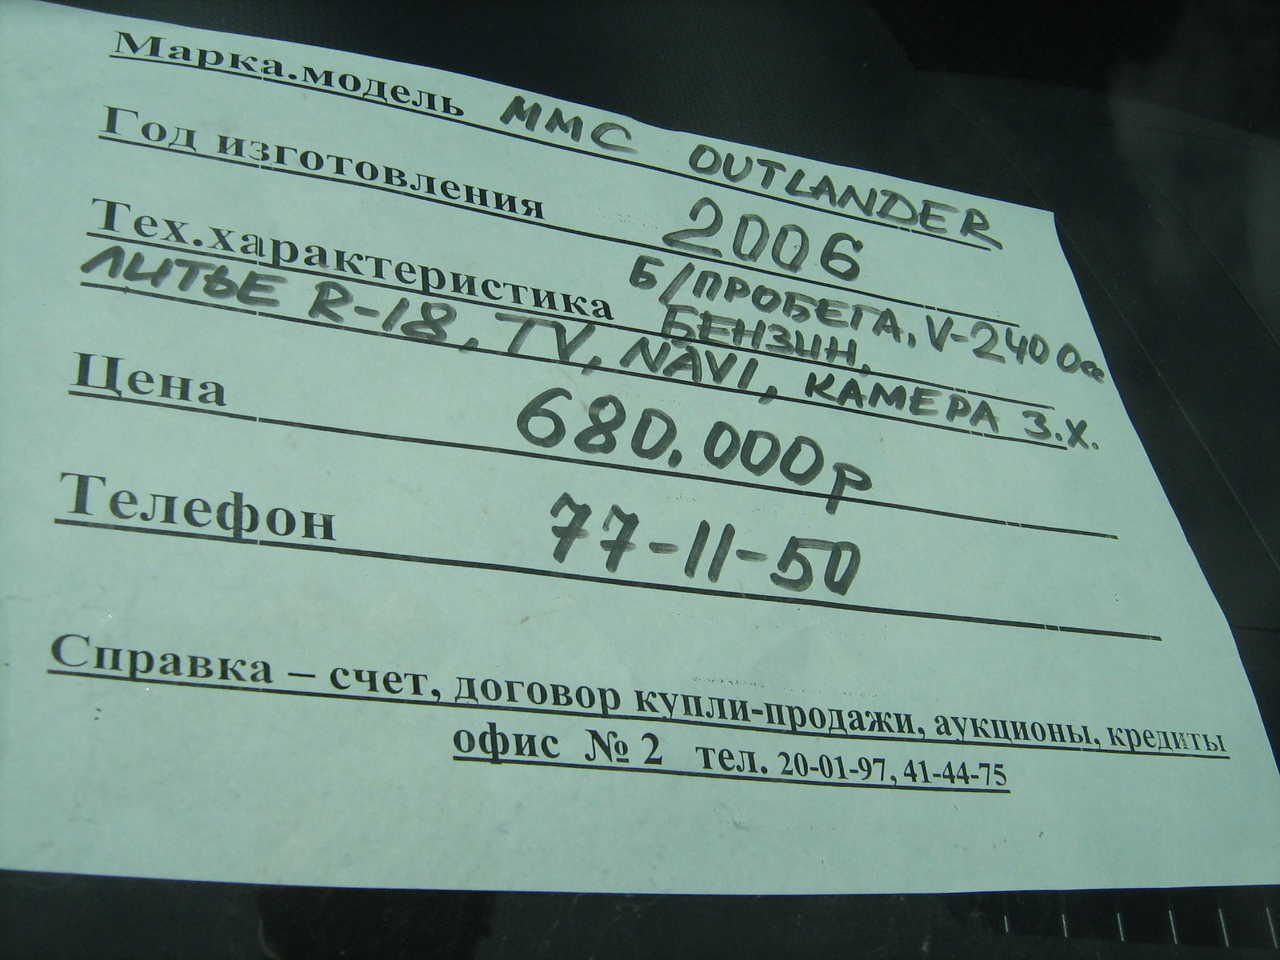 Марка.модель ММС OUTLANDER
Год изготовления 2006
Тех.характеристика Б/ПРОБЕГА, V-2400сс
БЕНЗИН,
ЛИТЬЕ R-18, TV, NAVI, КАМЕРА З.Х.
Цена 680.000р
Телефон 77-11-50
Справка – счет, договор купли-продажи, аукционы, кредиты
офис № 2 тел. 20-01-97, 41-44-75